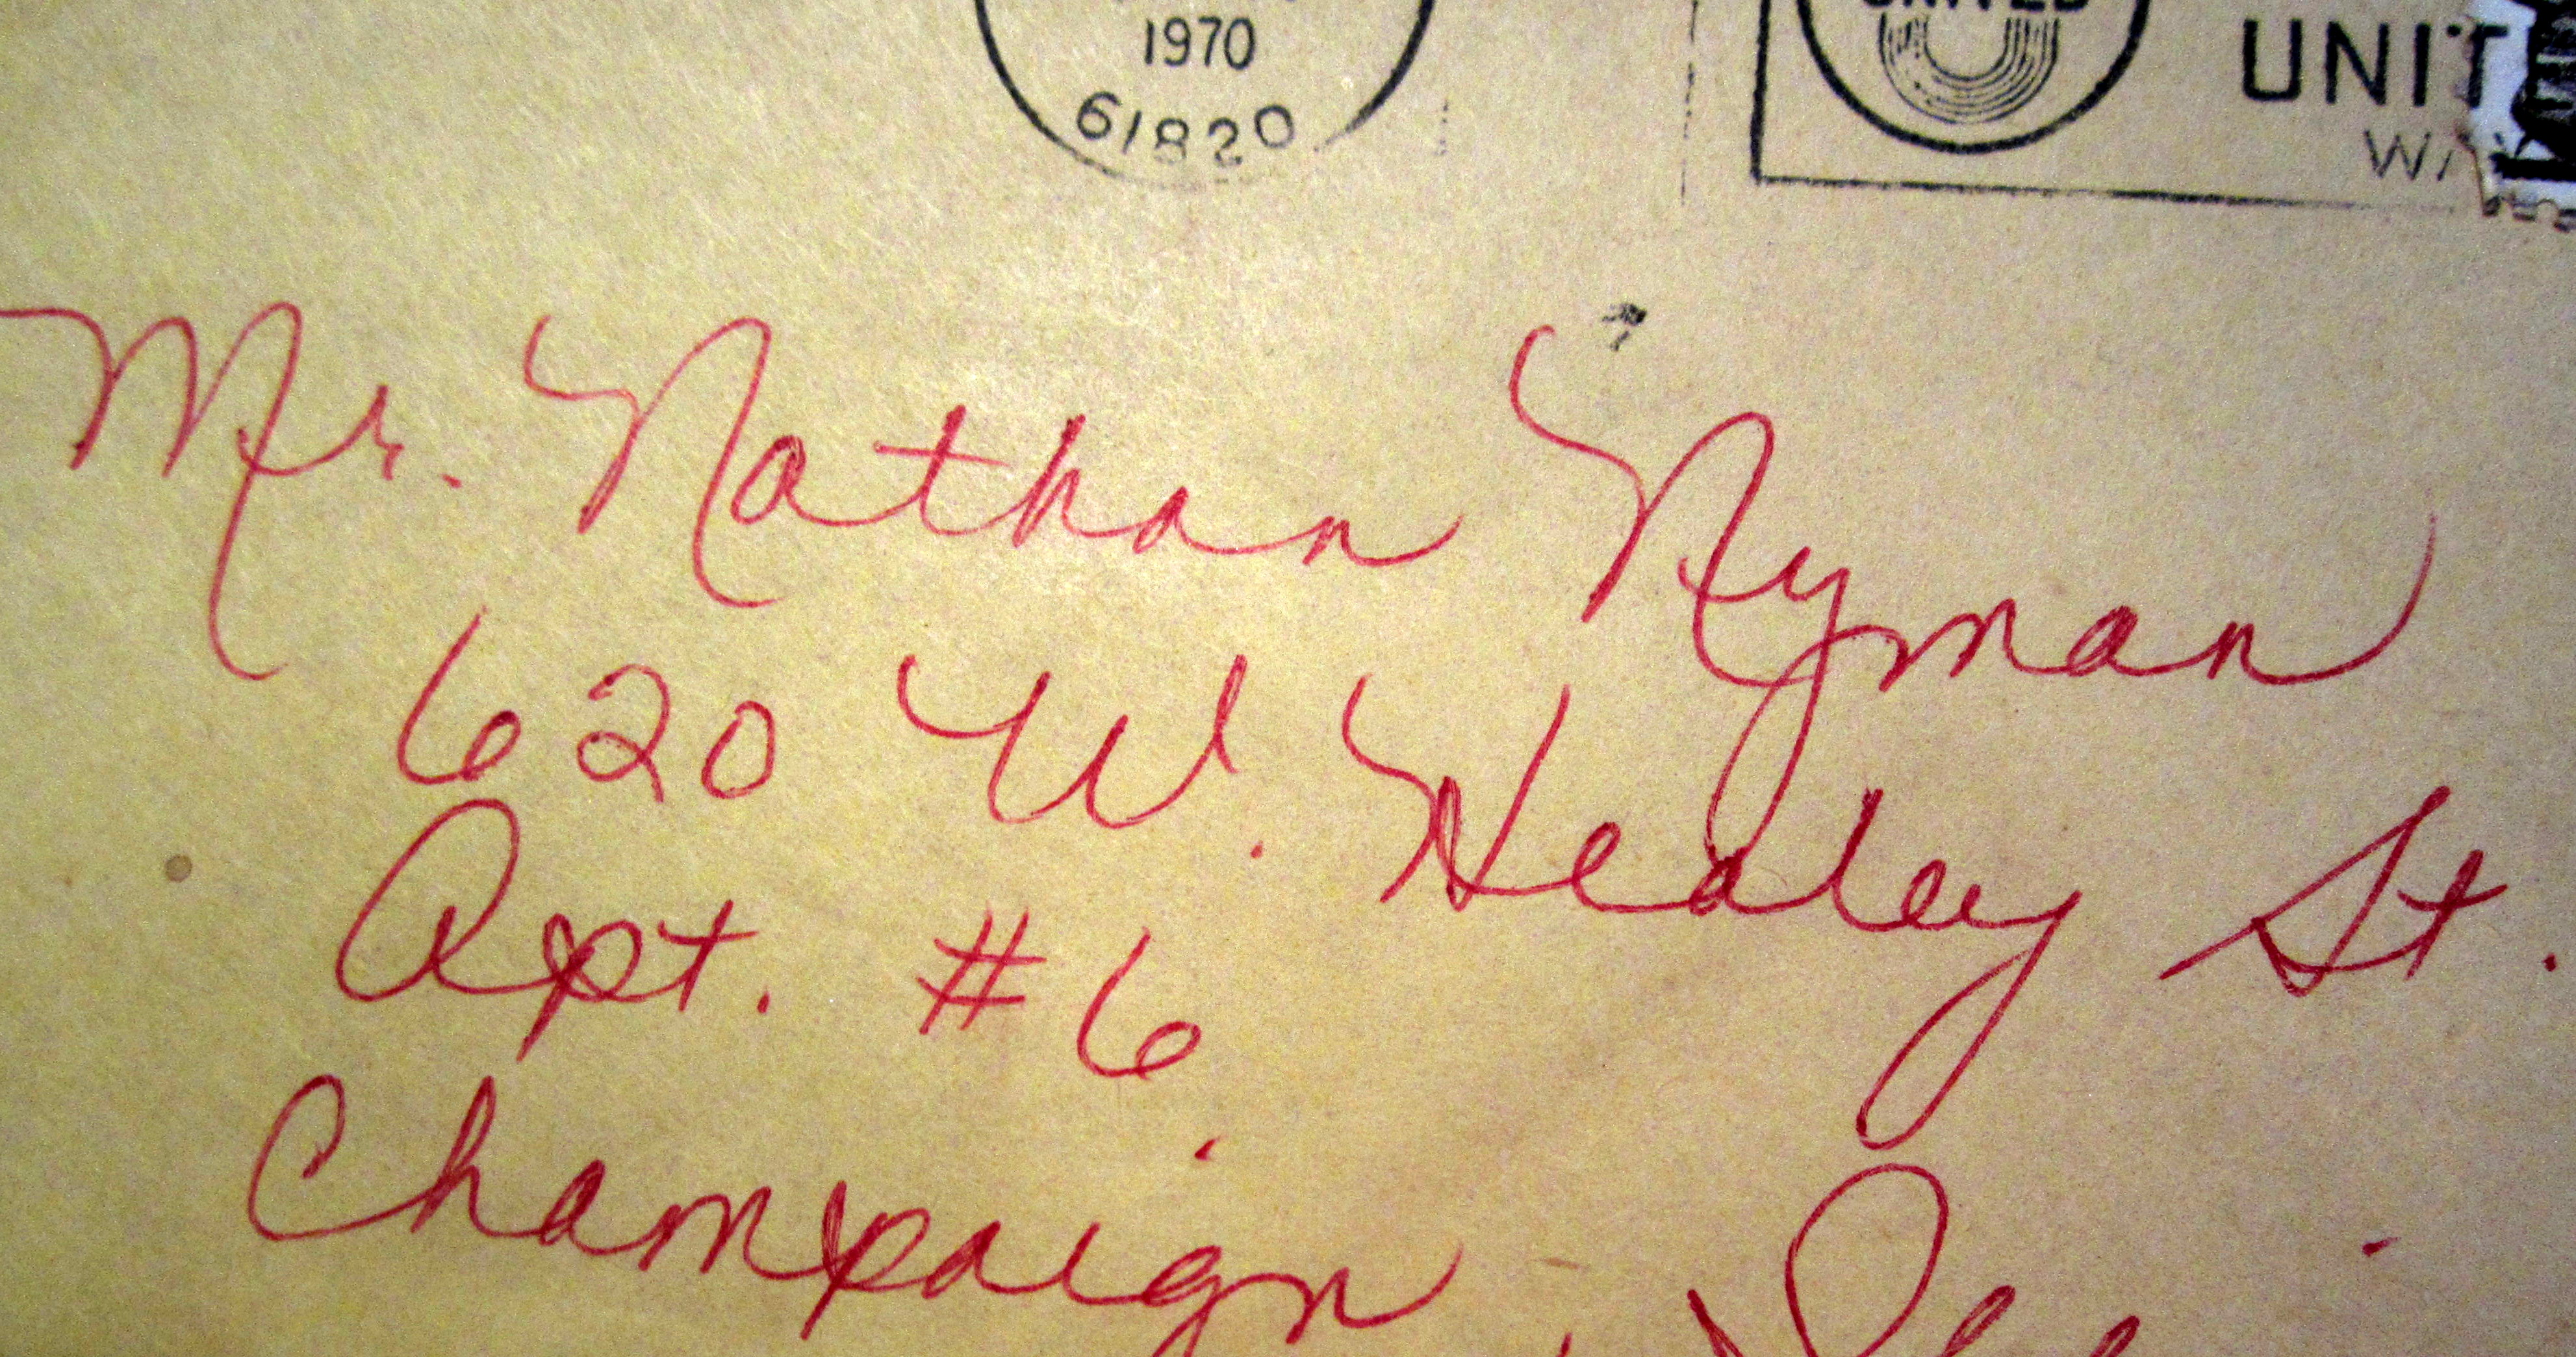 1970
61820
UNITED
UNIT
WA
Mr. Nathan Nyman
620 W. Healey St.
Apt. #6
Champaign,